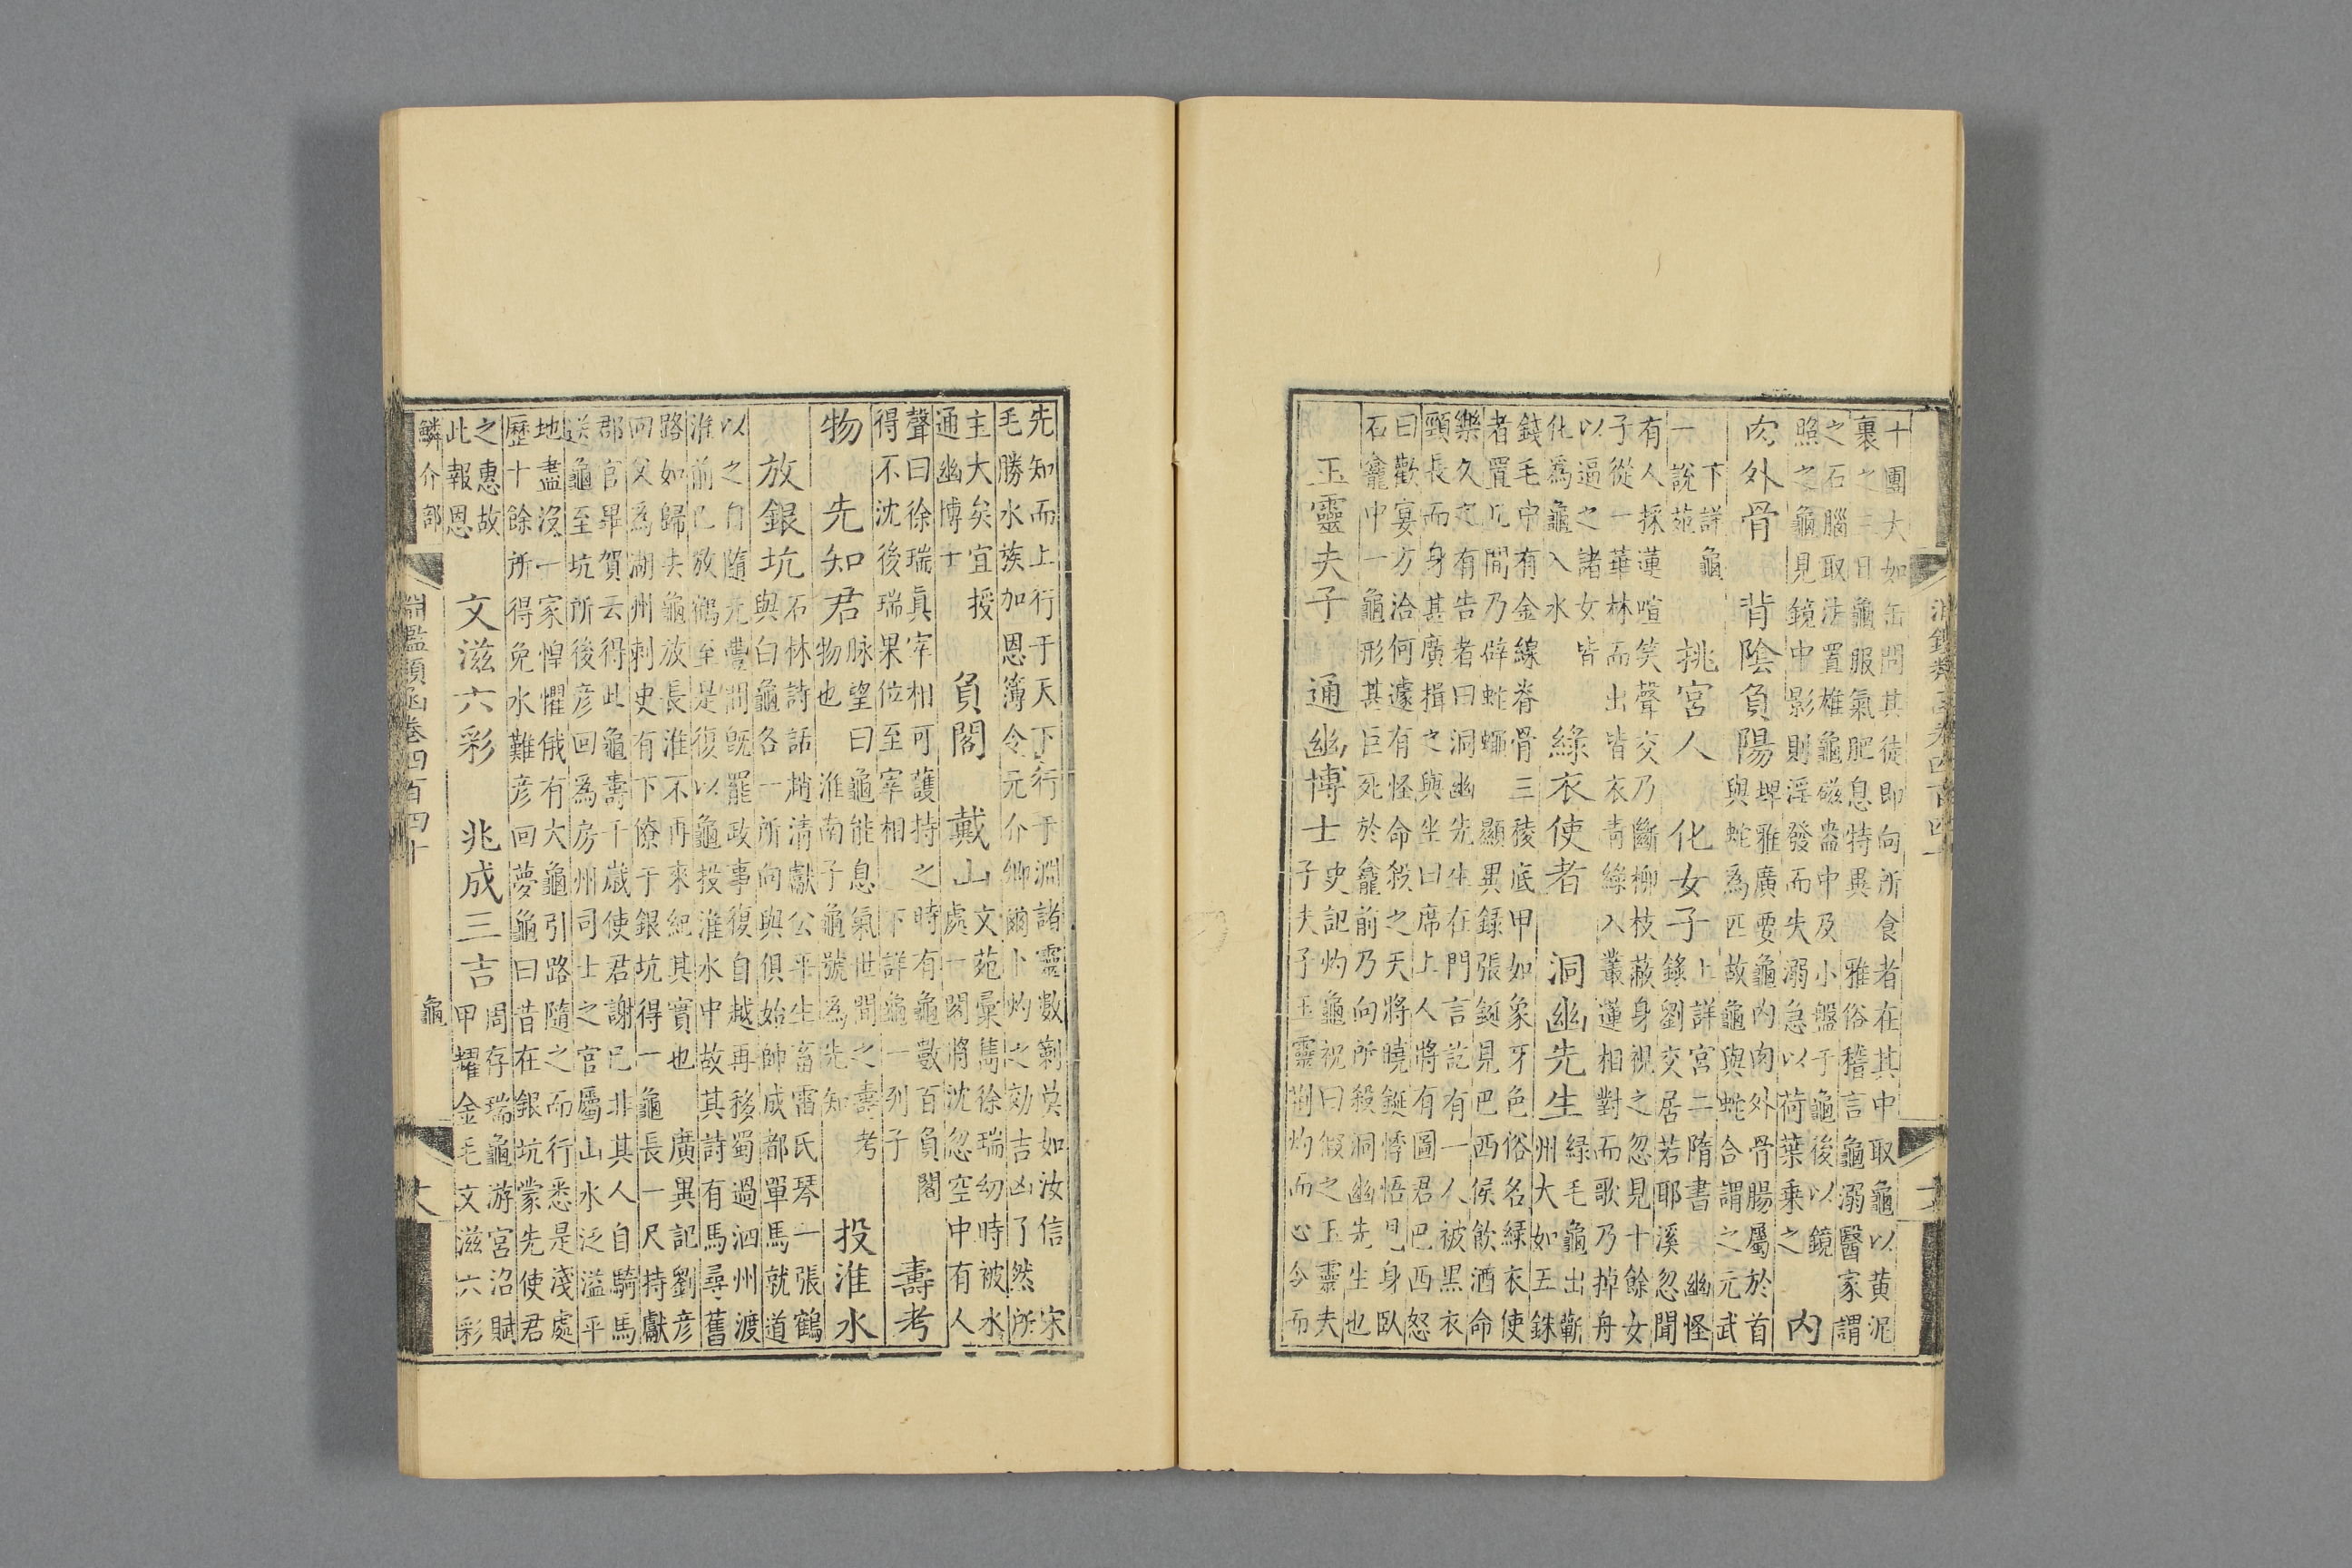 十團大如缶問其徒即向所食者在其中取龜以黄泥
裹之三日龜服氣肥息特異 雅俗稽言龜溺醫家謂
之石腦取法置雄龜磁盎中及小盤于龜後以鏡
照之龜見鏡中影則淫發而失溺急以荷葉乘之
內
肉外骨 背陰負陽
埤雅廣要龜內肉外骨腸屬於首
與蛇為匹故龜與蛇合謂之元武
下詳龜
一說苑
挑宮人 化女子
上詳宮二隋書 幽怪
錄劉交居若耶溪忽聞
有人採蓮喧笑聲交乃斷柳枝蔽身視之忽見十餘女
子從一華林而出皆衣青綠入叢蓮相對而歌乃掉舟
以逼之諸女皆
化為龜入水
綠衣使者 洞幽先生
綠毛龜出蘄
州大如五銖
錢毛中有金線脊骨三稜底甲如象牙色俗名綠衣使
者置几間乃辟蛇蝎 顯異錄張鋋見巴西侯飲酒命
樂久之有告者曰洞幽先生在門言訖有一人被黑衣
頸長而身甚廣揖之與坐曰席上人將有圖君巴西怒
曰歡宴方洽何遽有怪命殺之天將曉鋋悸悟見身臥
石龕中一龜形甚巨死於龕前乃向所殺洞幽先生也
玉靈夫子 通幽博士
史記灼龜祝曰假之玉靈夫
子夫子玉靈荊灼而心令而
先知而上行于天下行于淵諸靈數䇲莫如汝信 宋
毛勝水族加恩簿令元介卿爾卜灼之効吉凶了然所
主大矣宜授
通幽博士
負閣 戴山
文苑彙雋徐瑞幼時被水
處一閣將沈忽空中有人
聲曰徐瑞真宰相可護持之時有龜數百負閣
得不沈後瑞果位至宰相 下詳龜一列子
壽考
物 先知君
脉望曰龜能息氣世間之壽考
物也 淮南子龜號為先知
投淮水
放銀坑
石林詩話趙清獻公平生畜雷氏琴一張鶴
與白龜各一所向與俱始帥成都單馬就道
以之自隨元豐間既罷政事復自越再移蜀過泗州渡
淮前已放鶴至是復以龜投淮水中故其詩有馬尋舊
路如歸去龜放長淮不再來紀其實也 廣異記劉彦
回父為湖州刺史有下僚于銀坑得一龜長一尺持獻
郡官畢賀云得此龜壽千歲使君謝已非其人自騎馬
送龜至坑所後彦回為房州司士之官屬山水泛溢平
地盡沒一家惶懼俄有大龜引路隨之而行悉是淺處
歷十餘所得免水難彦回夢龜曰昔在銀坑蒙先使君
之惠故
此報恩
文滋六彩 兆成三吉
周存瑞龜游宮沼賦
甲耀金毛文滋六彩
鱗介部
龜
淵鑑類函卷四百四十